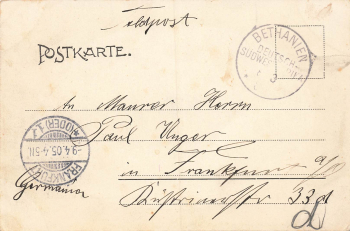 Feldpost
POSTKARTE.
BETHANIEN
DEUTSCH
SÜDWEST
An Maurer Herrn
Paul Unger
in Frankfurt a/O
Germania
Küstrinerstr 33 d
FRANKFURT
(ODER) 1
9.4.05.4-5N.